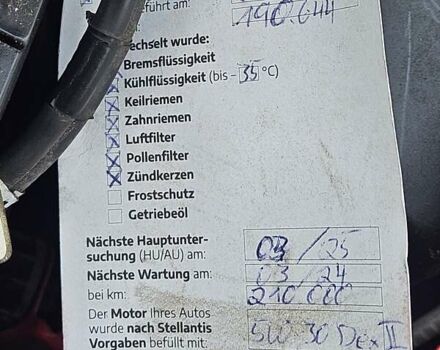 führt am:
190.644
echselt wurde:
Bremsflüssigkeit
Kühlflüssigkeit (bis -35°C)
Keilriemen
Zahnriemen
Luftfilter
Pollenfilter
Zündkerzen
Frostschutz
Getriebeöl
Nächste Hauptunter-
suchung (HU/AU) am: 03/25
Nächste Wartung am: 03/24
bei km: 210 000
Der Motor Ihres Autos
wurde nach Stellantis
Vorgaben befüllt mit: 5W 30 Dex II